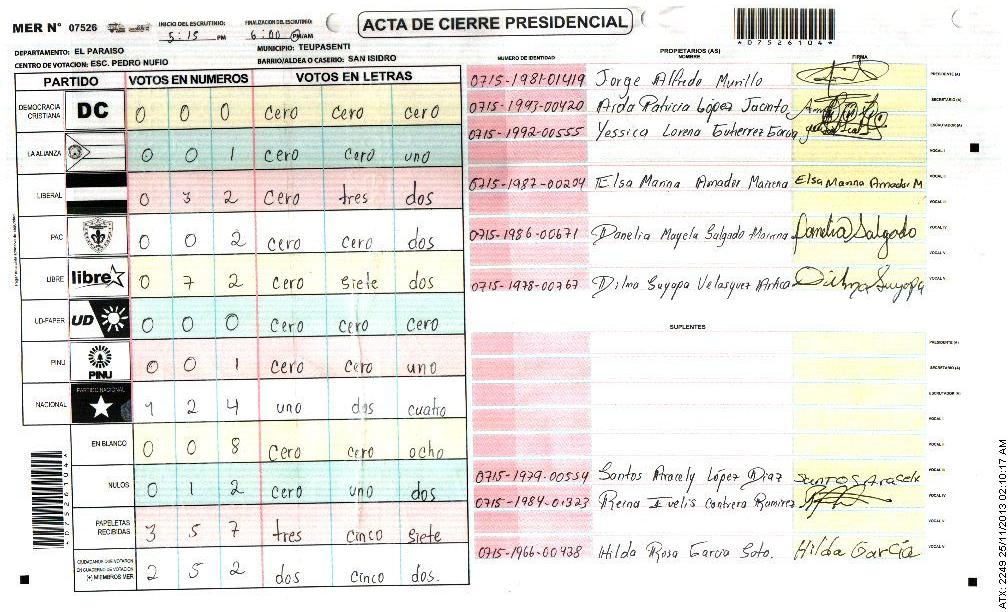 MER N° 07526 INICIO DEL ESCRUTINIO: 5:15 PM FINALIZACION DEL ESCRUTINIO: 6:00 PM/AM
ACTA DE CIERRE PRESIDENCIAL
*07526104*
DEPARTAMENTO: EL PARAISO MUNICIPIO: TEUPASENTI
CENTRO DE VOTACION: ESC. PEDRO NUFIO BARRIO/ALDEA O CASERIO: SAN ISIDRO
PARTIDO VOTOS EN NUMEROS VOTOS EN LETRAS
DEMOCRACIA CRISTIANA DC 0 0 0 cero cero cero
LA ALIANZA 0 0 1 cero cero uno
LIBERAL 0 3 2 cero tres dos
PAC 0 0 2 cero cero dos
LIBRE libre 0 7 2 cero siete dos
UD-FAPER UD 0 0 0 cero cero cero
PINU PINU 0 0 1 cero cero uno
NACIONAL PARTIDO NACIONAL 1 2 4 uno dos cuatro
EN BLANCO 0 0 8 cero cero ocho
NULOS 0 1 2 cero uno dos
PAPELETAS RECIBIDAS 3 5 7 tres cinco siete
CIUDADANOS QUE VOTARON EN CUADERNO DE VOTACION (+) MIEMBROS MER 2 5 2 dos cinco dos.
*07526104*
PROPIETARIOS (AS)
NUMERO DE IDENTIDAD NOMBRE FIRMA
0715-1981-01419 Jorge Alfredo Murillo PRESIDENTE (A)
0715-1993-00420 Aida Patricia López Jacinto SECRETARIO (A)
0715-1992-00555 Yessica Lorena Gutierrez Garcia ESCRUTADOR (A)
VOCAL I
0715-1987-00204 Elsa Marina Amador Mairena Elsa Marina Amador M VOCAL II
0715-1986-00671 Danelia Mayela Salgado Moreno Danelia Salgado VOCAL IV
0715-1978-00767 Dilma Suyapa Velasquez Dilma Suyapa VOCAL V
SUPLENTES
PRESIDENTE (A)
SECRETARIO (A)
ESCRUTADOR (A)
VOCAL I
VOCAL II
0715-1979-00554 Santos Aracely López Diaz Santos Aracely VOCAL III
0715-1984-01323 Reina Evelis Contrera Ramirez VOCAL IV
VOCAL V
0715-1966-00438 Hilda Rosa Garcia Soto. Hilda García VOCAL VI
ATX: 2249 25/11/2013 02:10:17 AM